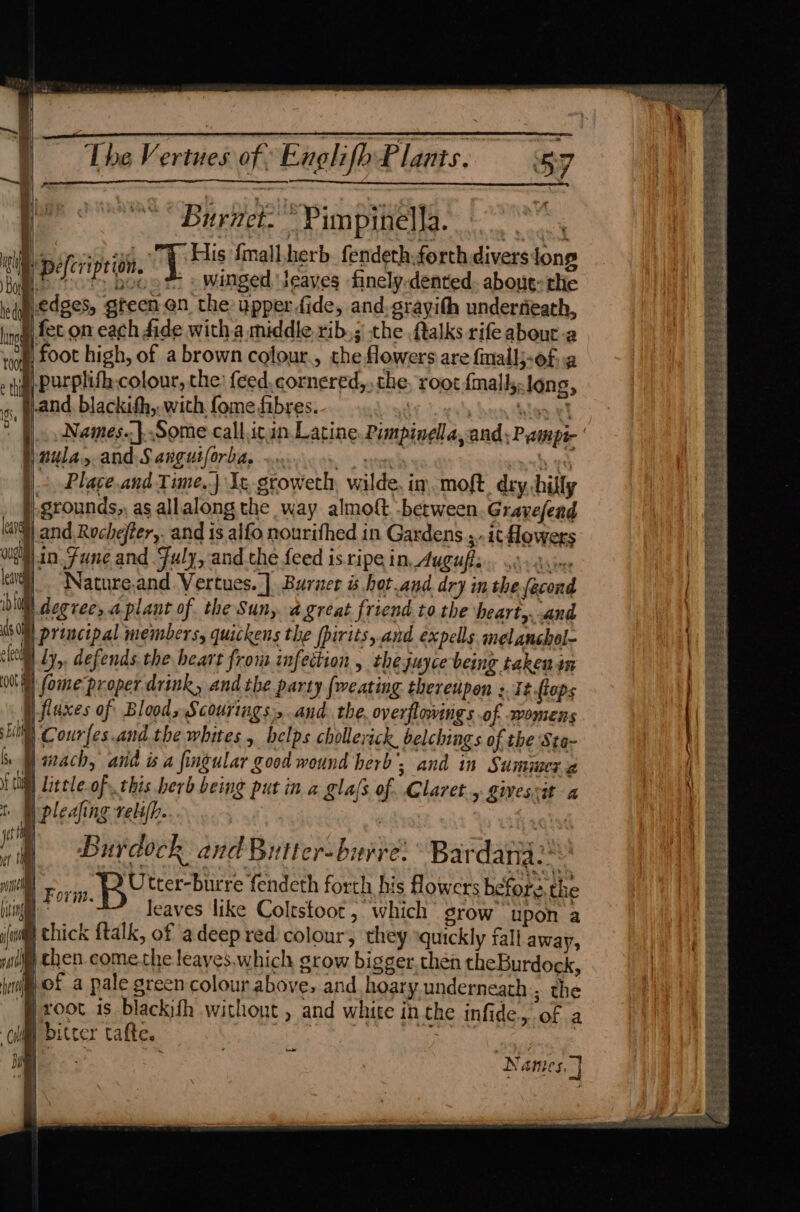 The Vertues of Engliſh Plants. 57
Burnet. Pimpinella.
Deſcription. THis ſmall herb ſendeth forth divers long
winged leaves finely dented about the
edges, green on the upper ſide, and grayiſh underneath,
ſet on each ſide with a middle rib; the ſtalks riſe about a
foot high, of a brown colour, the flowers are ſmall, of a
purpliſh colour, the ſeed cornered, the root ſmall, long,
and blackiſh, with ſome fibres.
Names.] Some call it in Latine Pimpinella, and Pampi-
nula, and Sanguiſorba.
Place and Time.] It groweth wilde in moſt dry hilly
grounds, as all along the way almoſt between Graveſend
and Rocheſter, and is alſo nouriſhed in Gardens; it flowers
in June and July, and the ſeed is ripe in Auguſt.
Nature and Vertues.] Burnet is hot and dry in the ſecond
degree, a plant of the Sun, a great friend to the heart, and
principal members, quickens the ſpirits, and expells melanchol-
ly, defends the heart from infection, the juyce being taken in
ſome proper drink, and the party ſweating thereupon: It ſtops
fluxes of Blood, Scourings, and the overflowings of womens
Courſes and the whites, helps chollerick belchings of the Sto-
mach, and is a ſingular good wound herb; and in Summer a
little of this herb being put in a glaſs of Claret, gives it a
pleaſing reliſh.
Burdock and Butter-burre. Bardana.
Form. BUtter-burre ſendeth forth his flowers before the
leaves like Coltsfoot, which grow upon a
thick ſtalk, of a deep red colour, they quickly fall away,
then come the leaves which grow bigger then the Burdock,
of a pale green colour above, and hoary underneath; the
root is blackiſh without, and white in the inſide, of a
bitter taſte.
Names.]